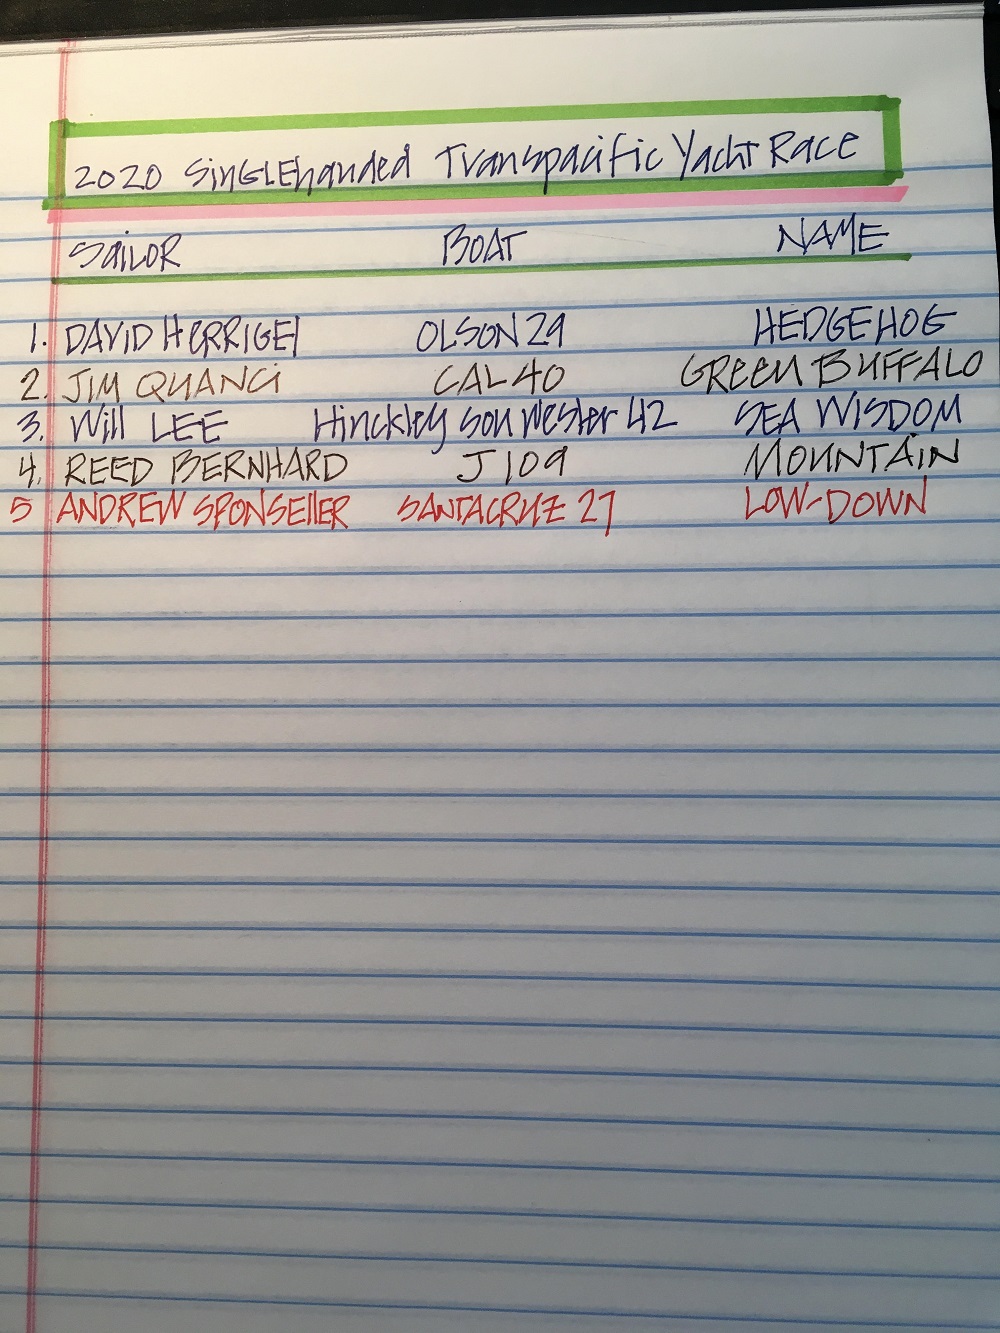 2020 SingLEhanded Transpacific Yacht Race
SAiLOR BOAT NAME
1. DAVID HERRIGEl OLSON 29 HEDGEHOG
2. JIM QUANCi CAL 40 GREEN BUFFALO
3. Will LEE Hinckley Sou Wester 42 SEA WISDOM
4. REED BERNHARD J 109 MOUNTAiN
5 ANDREW SPONSEllER SANTACRUZ 27 LOW-DOWN